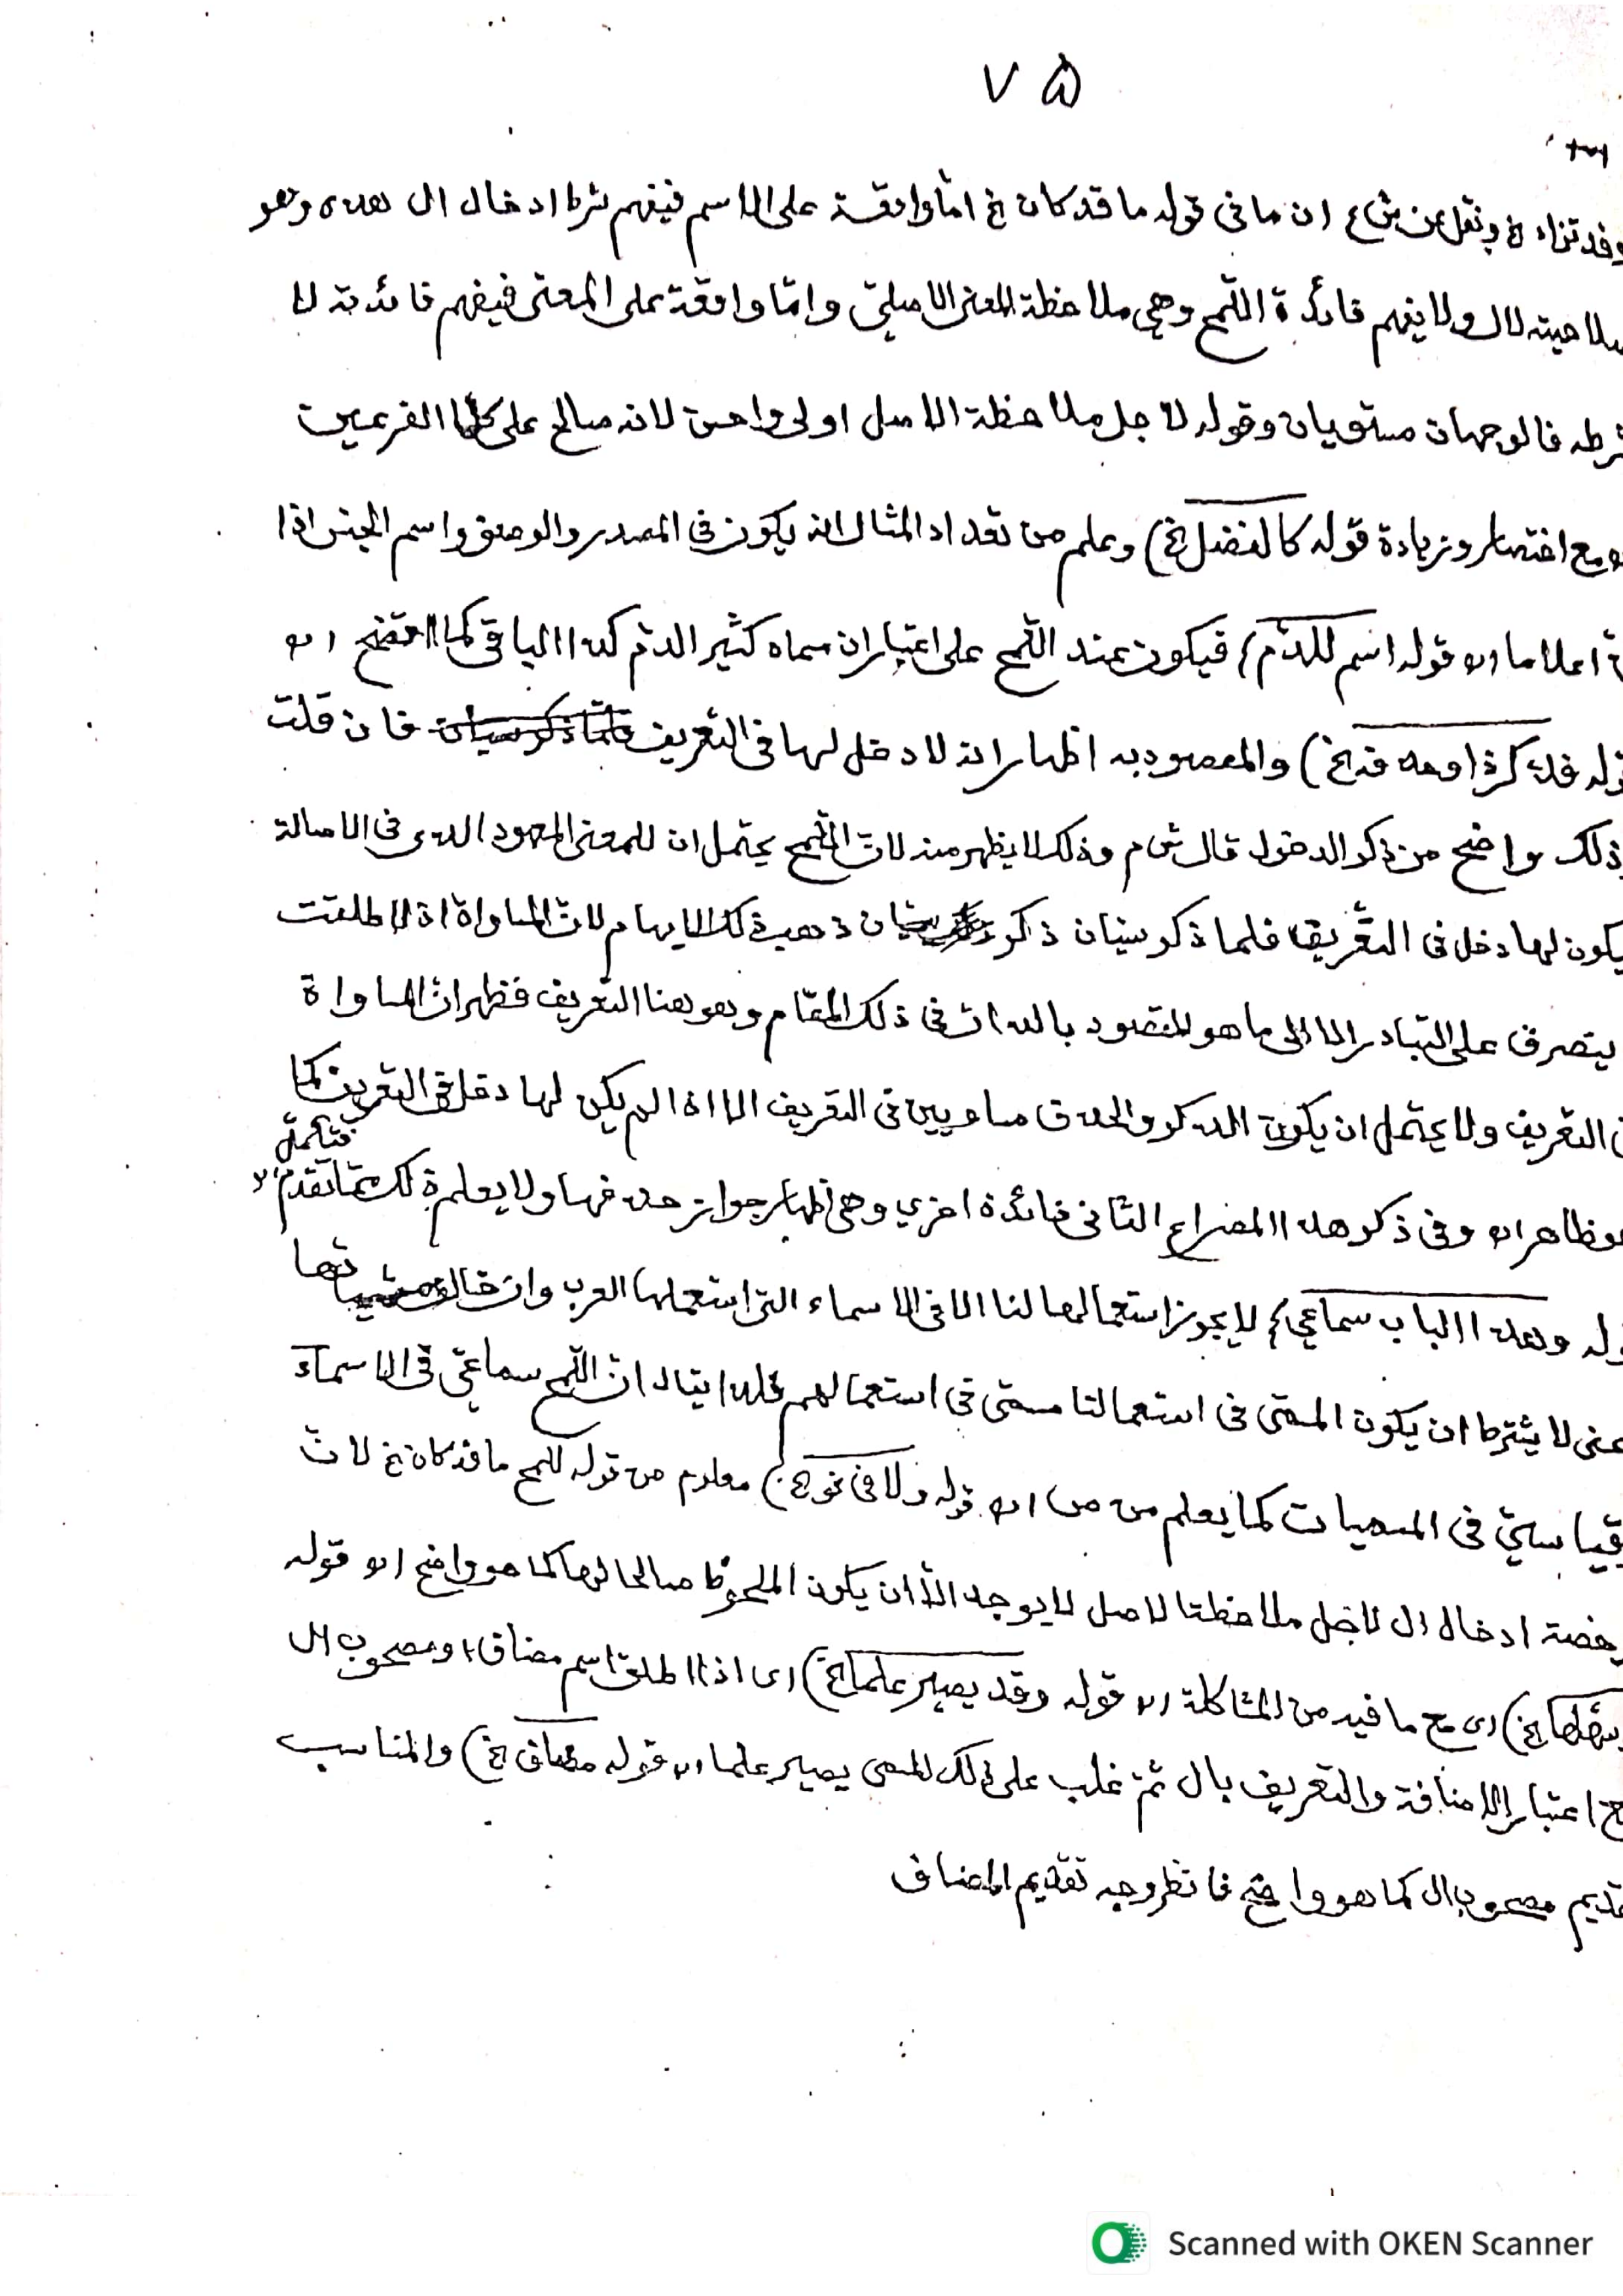 ٧٥
ونقل عن ش ع ان ما في قوله ما قد كان الخ اما واقعة على الاسم فيفهم شرط ادخال ال هذه وهو
صلاحيته لال ولا يفهم فائدة اللمح وهي ملاحظة المعنى الاصلي واما واقعة على المعنى فيفهم فائدته لا
شرطه فالوجهان مستويان وقوله لاجل ملاحظة الاصل اولى واحسن لانه صالح على كلا الفرعين
مع اختصار وزيادة قوله كالفضل الخ) وعلم من تعداد المثال انه يكون في المصدر والوصف واسم الجنس اذا
اعلاما اه قوله اسم للدم) فيكون عند اللمح على اعتبار ان مسماه كثير الدم كذا الباقي كما اتضح اه
قوله فذكر ذا وحذفه الخ) والمقصود به اظهار انه لا دخل لها في التعريف فان قلت
ذلك واضح من ذكر الدخول قال ش م وذلك لا يظهر منه لان اللمح يحتمل ان للمعنى المعهود الذى في الاصالة
يكون لها دخل في التعريف فلما ذكر سيّان ذكر ذهب ذلك الايهام لان المساواة اذا اطلقت
يتصرف على التبادر الا الى ما هو المقصود بالذات في ذلك المقام وهو هنا التعريف فظهر ان المساواة
التعريف ولا يحتمل ان يكون الذكر والحذف مساويين في التعريف الا اذا لم يكن لها دخل في التعريف كما
فتأمل
ظاهر اه وفى ذكر هذا المصراع الثاني فائدة اخري وهي اظهار جواز حذفها ولا يعلم ذلك مما تقدم
قوله وهذا الباب سماعي) لا يجوز استعمالها لنا الا في الاسماء التى استعملها العرب وان خالف
عنى لا يشترط ان يكون المسمى في استعمالنا مسمى في استعمالهم فلذا يقال ان اللمح سماعي في الاسماء
قياسي في المسميات كما يعلم من ص اه قوله ولا في نحو الخ) معلوم من قوله للمح ما قد كان الخ لان
رخصة ادخال ال لاجل ملاحظة الاصل لا يوجد الا ان يكون الملحوظ صالحا لها كما هو واضح اه قوله
الخ) اى مع ما فيه من المشاكلة اه قوله وقد يصير علما الخ) اى اذا اطلق اسم مضاف او مصحوب ال
مع اعتبار الاضافة والتعريف بال ثم غلب على ذلك المسمى يصير علما اه قوله مضاف الخ) والمناسب
تقديم مصحوب ال كما هو واضح فانظر وجه تقديم المضاف
Scanned with OKEN Scanner